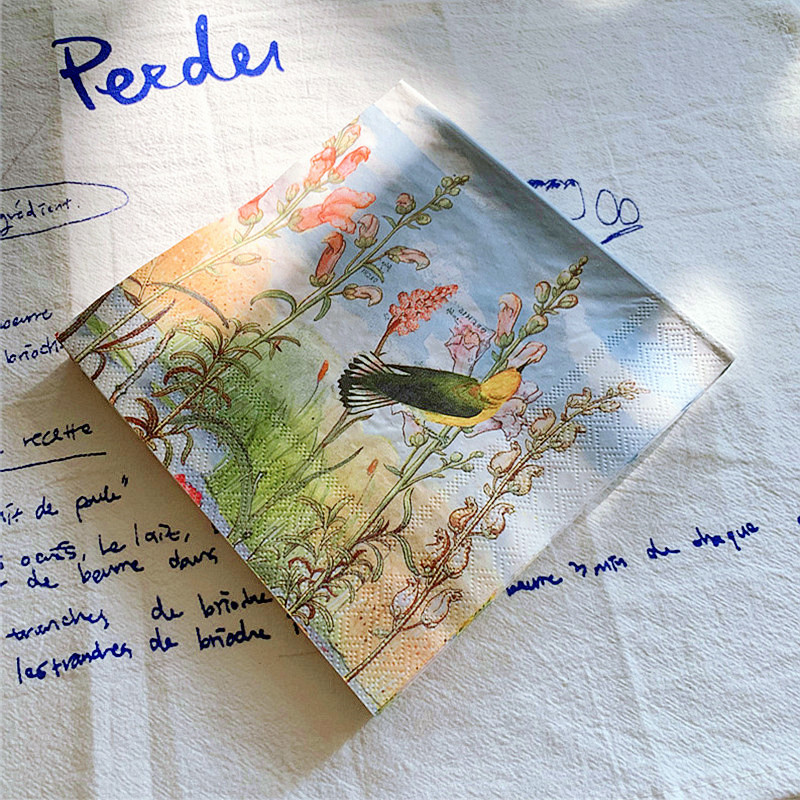 Perdu
grédient.
beurre
brioch
recette
it de poule"
oeufs, le lait,
de beurre dans
tranches de brioche
les tranches de brioche
beurre 3 min de chaque